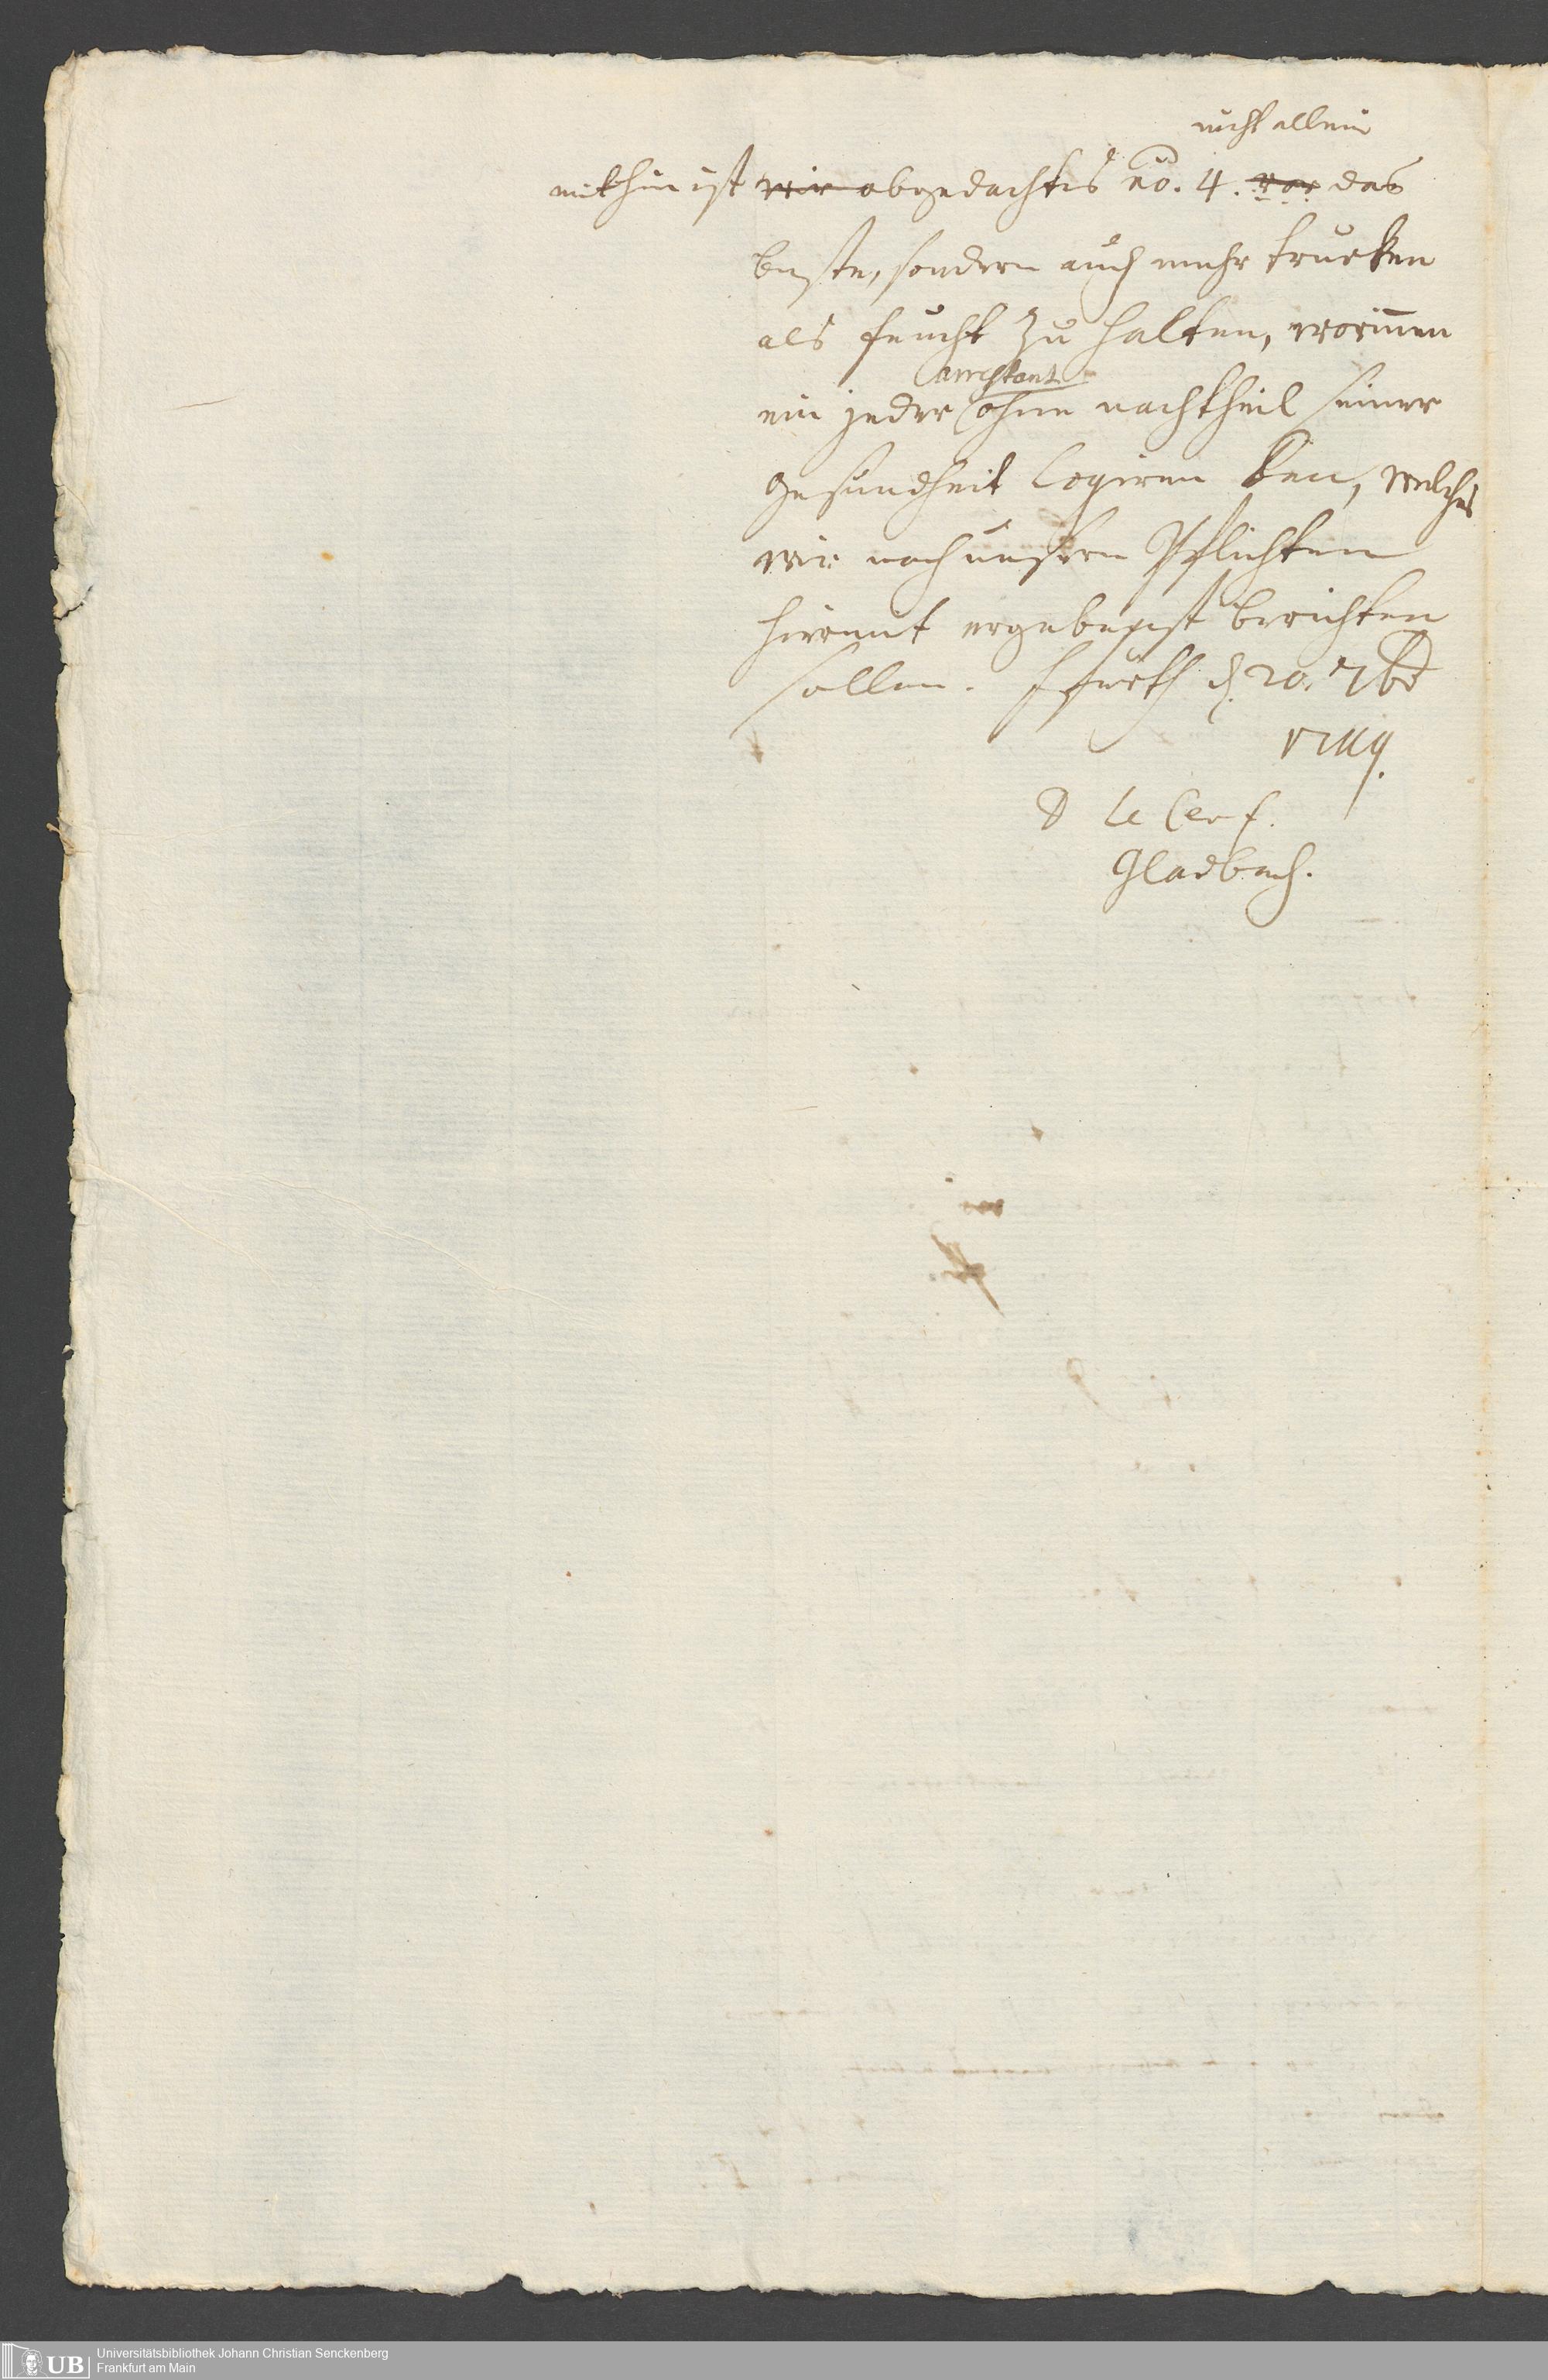 nicht allein
mithin ist wir obgedachtes no. 4. vor das
beste, sondern auch mehr trucken
als feucht zu halten, worinnen
arrestant
ein jeder ohne nachtheil seiner
gesundheit logiren kan, welches
wir nach unsern Pflichten
hiermit ergebenst berichten
sollen. Ffurth d. 20. 7br
D Le Cerf.
Gladbach.
Universitätsbibliothek Johann Christian Senckenberg
UB Frankfurt am Main